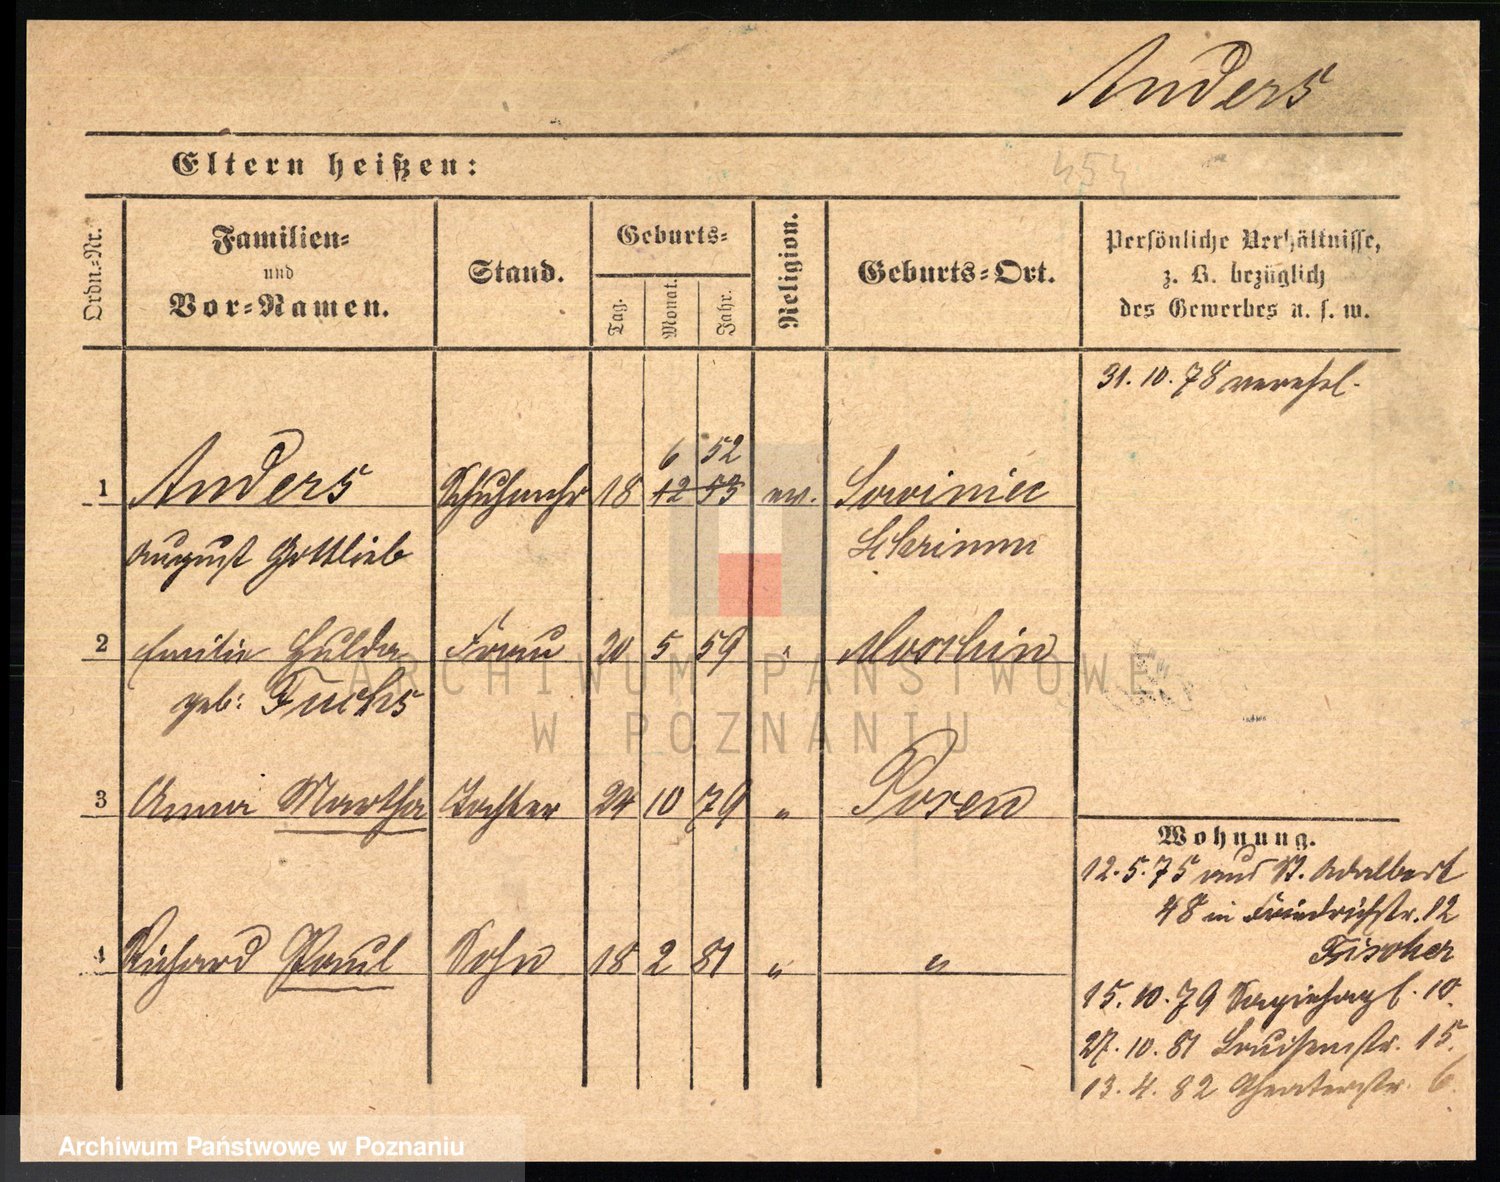 Anders
Eltern heißen:
454
Ordn.-Nr.
Familien-
und
Vor-Namen.
Stand.
Geburts-
Tag.
Monat.
Jahr.
Religion.
Geburts-Ort.
Persönliche Verhältnisse,
z. B. bezüglich
des Gewerbes u. s. w.
31. 10. 78 verehel.
6 52
1 Anders Schuhmchr 18 12 53 ev. Sowiniec
August Gottlieb Schrimm
2 Emilie Hulda Frau 20 5 59 " Moschin
geb: Fuchs
3 Anna Martha Tochter 24 10 79 " Posen
4 Richard Paul Sohn 18 2 81 " "
Wohnung.
12. 5. 75 aus St. Adalbert
48 in Friedrichstr. 12
Fischer
15. 10. 79 Sapiehapl. 10.
27. 10. 81 Louisenstr. 15.
13. 4. 82 Theaterstr. 6.
ARCHIWUM PAŃSTWOWE
W POZNANIU
Archiwum Państwowe w Poznaniu